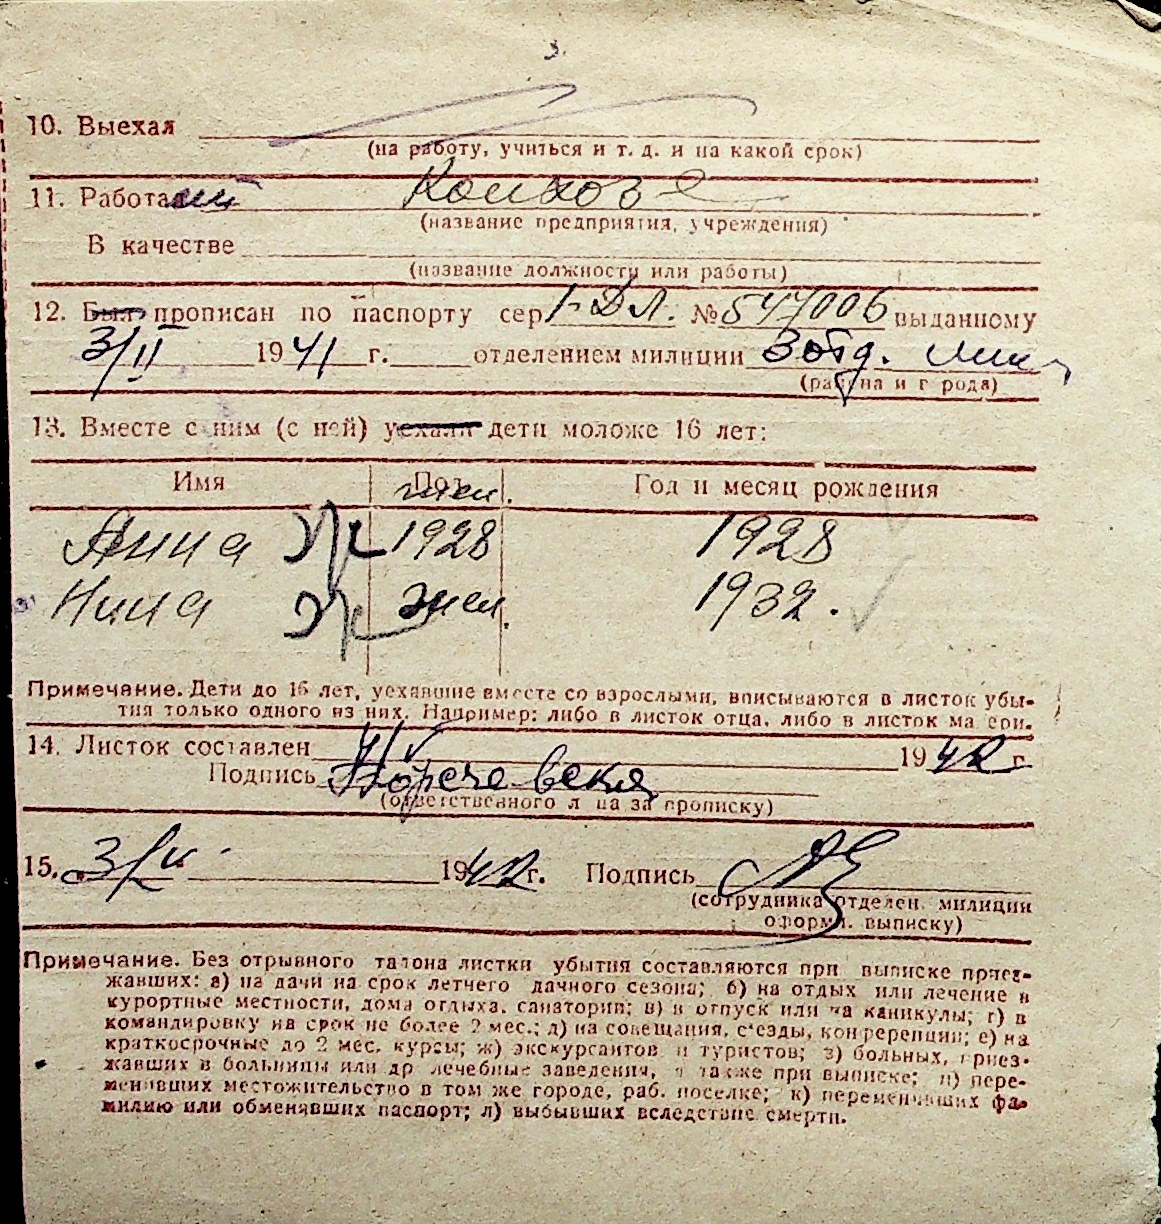 3.
10. Выехал
(на работу, учиться и т. д. и на какой срок)
11. Работа Колхозе
(название предприятия, учреждения)
В качестве
(название должности или работы)
12. Был прописан по паспорту сер. I-ДЛ. № 547006 выданному
3/II 1941 г. отделением милиции 3 отд.
(района и города)
13. Вместе с ним (с ней) уехали дети моложе 16 лет:
Имя Пол Год и месяц рождения
жен.
Анна Ж 1928 1928
Нина Ж жен. 1932.
Примечание. Дети до 16 лет, уехавшие вместе со взрослыми, вписываются в листок убы-
тия только одного из них. Например: либо в листок отца, либо в листок матери.
14. Листок составлен 1942 г.
Подпись
(ответственного лица за прописку)
15. 1942 г. Подпись
(сотрудника отделен. милиции
оформ. выписку)
Примечание. Без отрывного талона листки убытия составляются при выписке приез-
жавших: а) на дачи на срок летнего дачного сезона; б) на отдых или лечение в
курортные местности, дома отдыха, санатории; в) в отпуск или на каникулы; г) в
командировку на срок не более 2 мес.; д) на совещания, съезды, конференции; е) на
краткосрочные до 2 мес. курсы; ж) экскурсантов и туристов; з) больных, приез-
жавших в больницы или др лечебные заведения, а также при выписке; и) пере-
менивших местожительство в том же городе, раб. поселке; к) переменивших фа-
милию или обменявших паспорт; л) выбывших вследствие смерти.